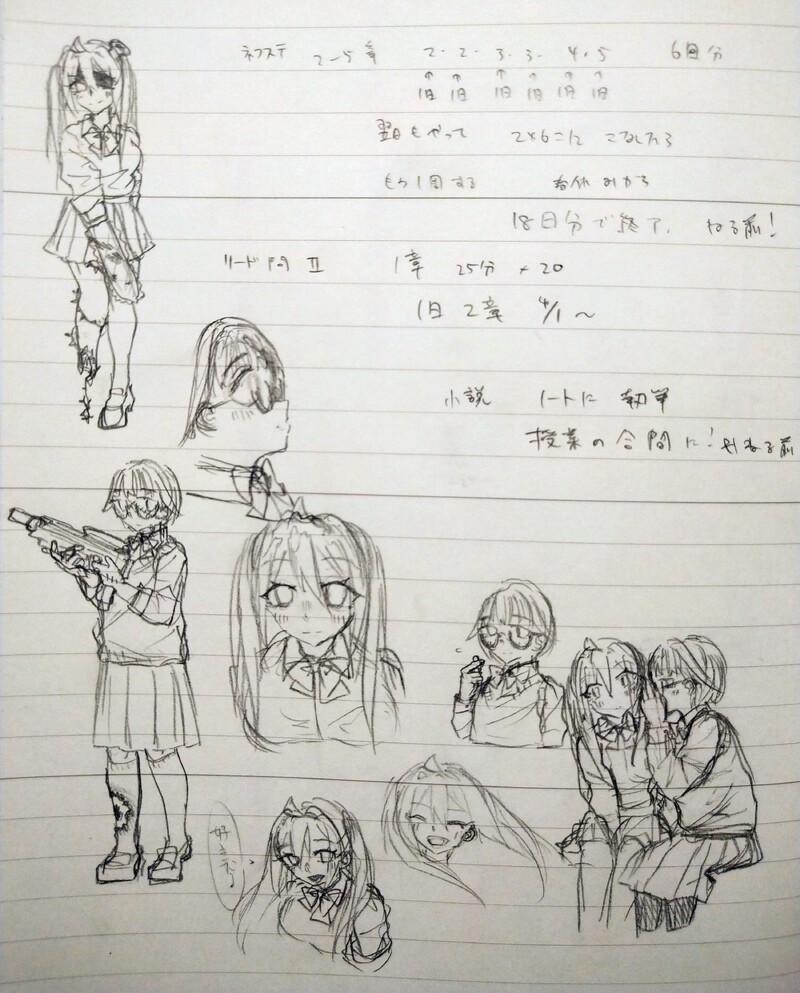 ネクステ 2〜5章 2・2・3・3・4・5 6日分
↑ ↑ ↑ ↑ ↑ ↑
1日 1日 1日 1日 1日 1日
翌日もやって 2×6=12 こなしたら
もう1周する 春休みから
18日分で終了. ねる前!
リード問 Ⅱ 1章 25分×20
1日 2章 4/1〜
小説 ノートに 執筆
授業の合間に! ねる前
好き